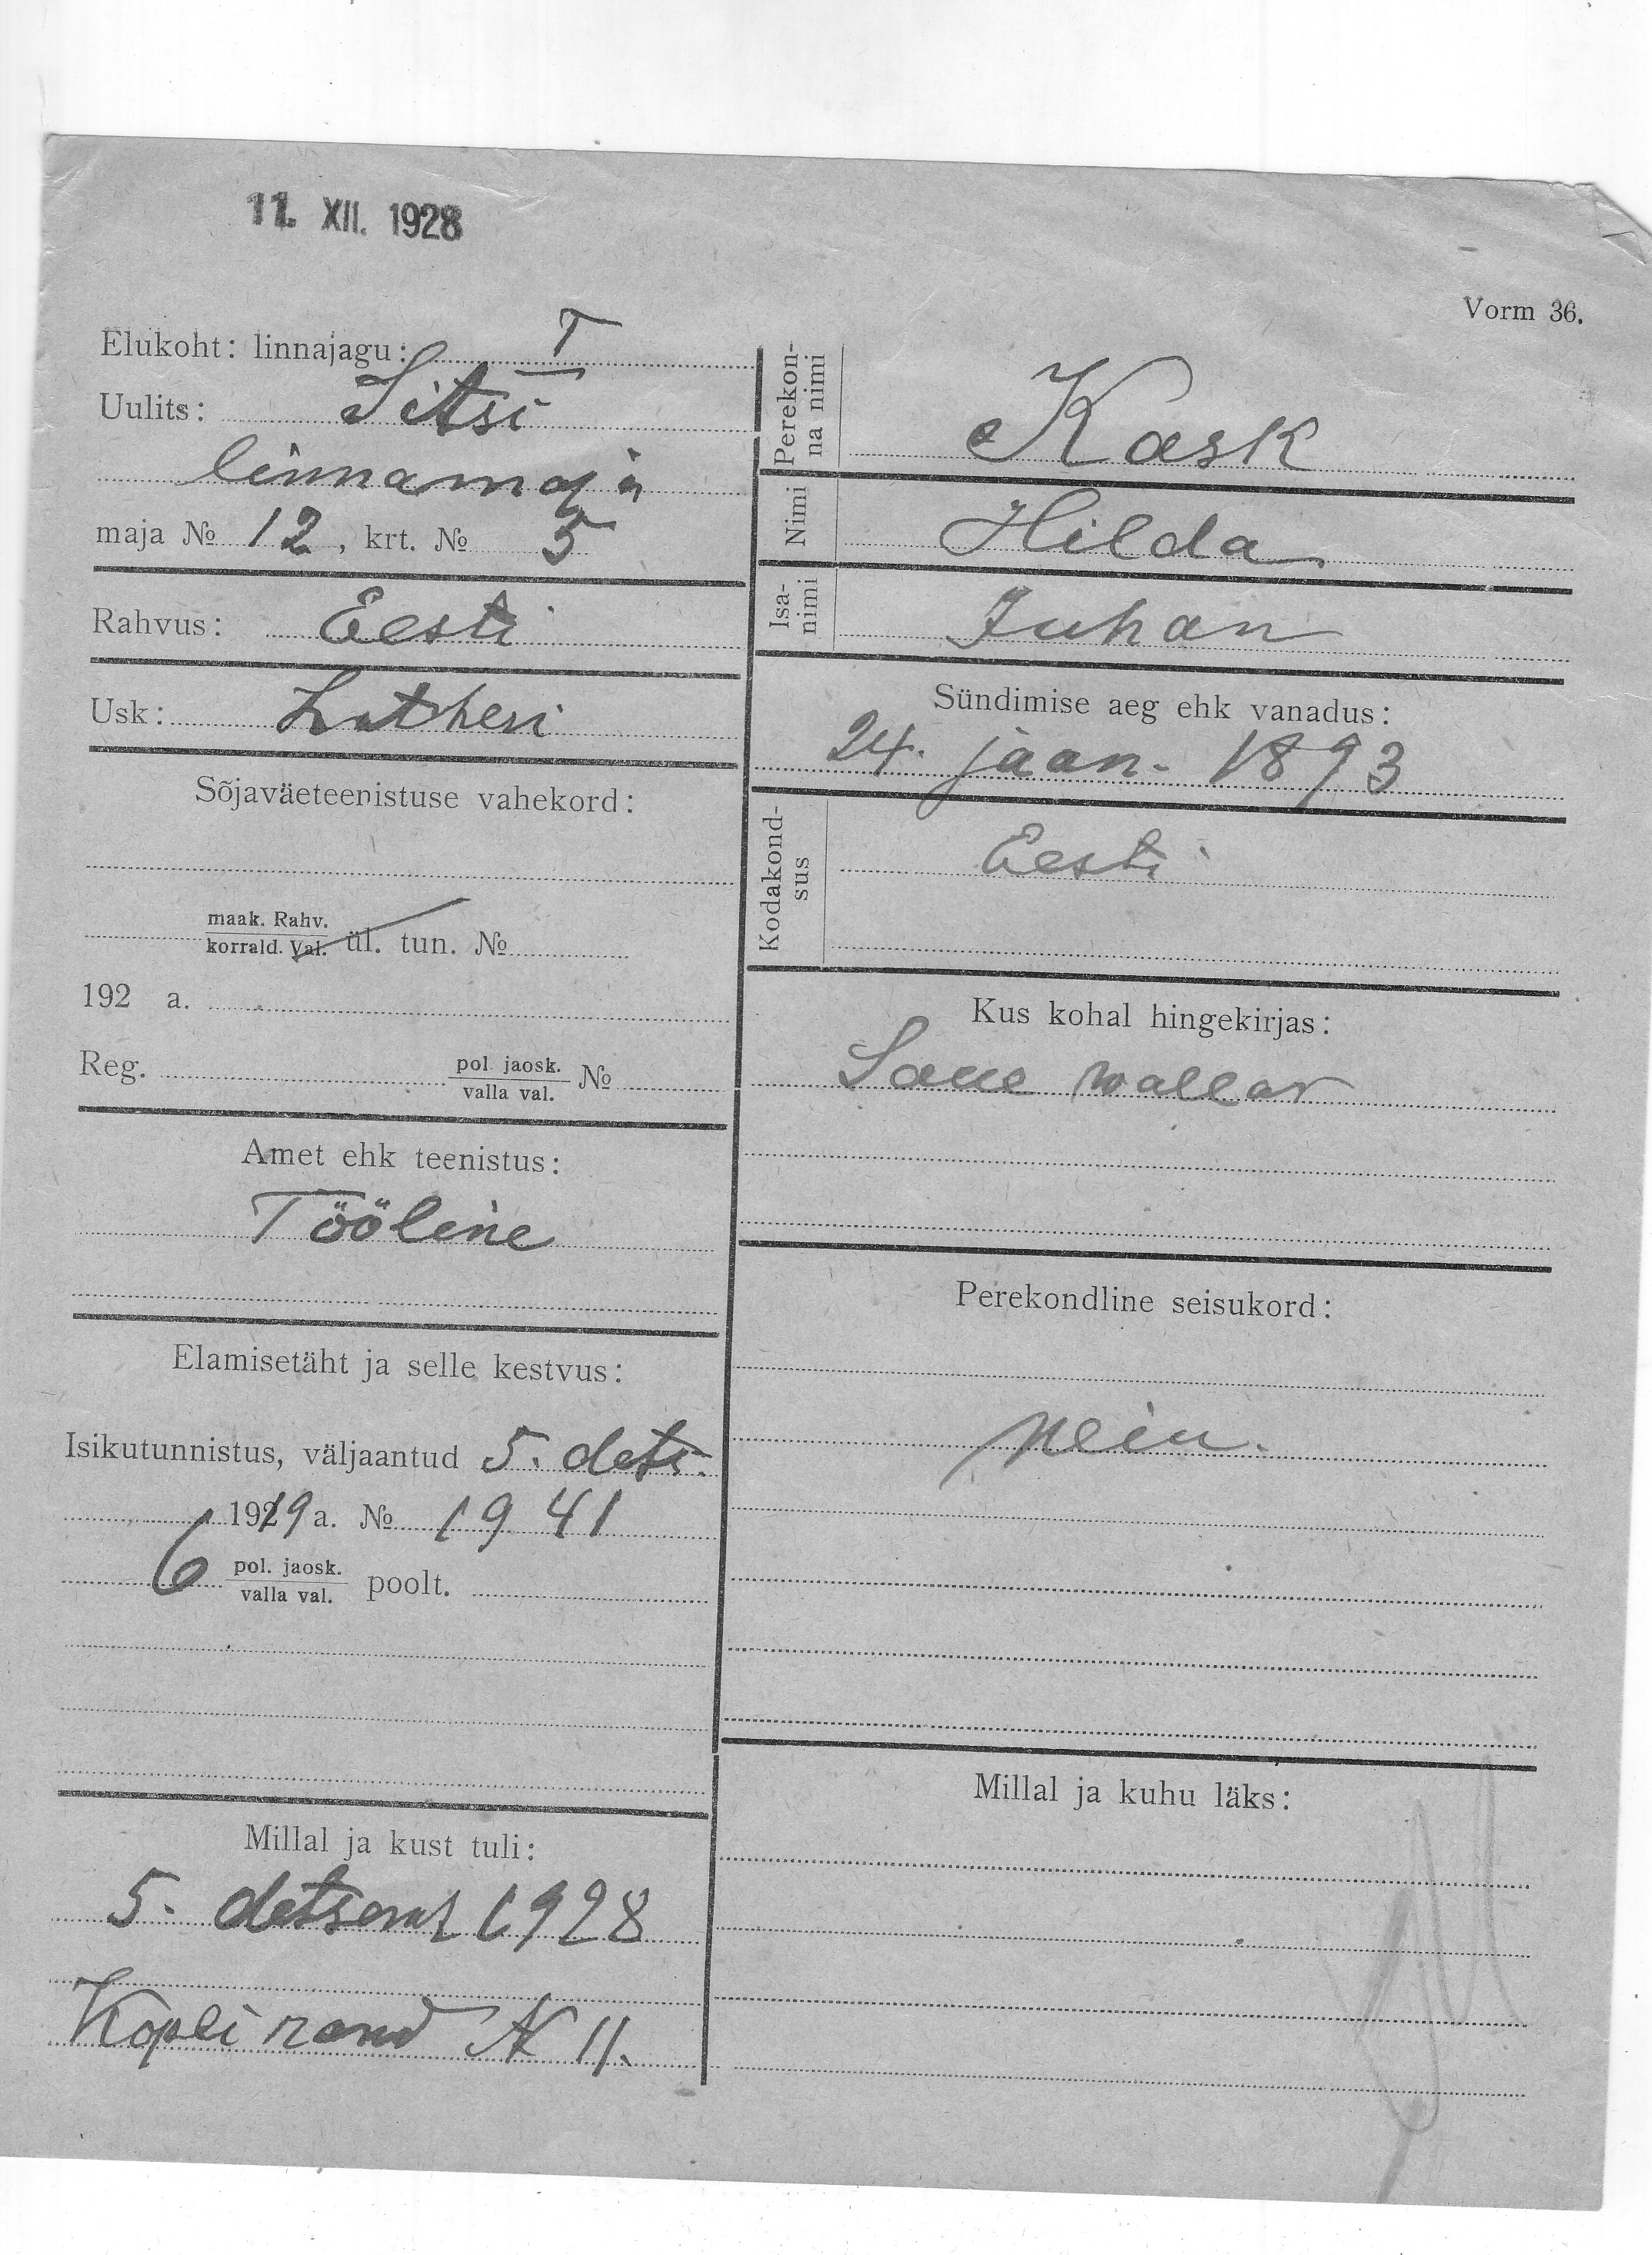 11. XII. 1928
Vorm 36.
Elukoht: linnajagu: I
Uulits: Sitsi
linnamaja
maja № 12, krt. № 5
Rahvus: Eesti
Usk: Lutheri
Sõjaväeteenistuse vahekord:
maak. Rahv.
korrald. Val. ül. tun. №
192 a.
Reg. pol. jaosk. №
valla val.
Amet ehk teenistus:
Tööline
Elamisetäht ja selle kestvus:
Isikutunnistus, väljaantud 5. dets.
1919 a. № 1941
6 pol. jaosk. poolt.
valla val.
Millal ja kust tuli:
5. detsemb 1928
Kopli rand N 11.
Perekon-
na nimi
Kask
Nimi
Hilda
Isa-
nimi
Juhan
Sündimise aeg ehk vanadus:
24. jaan. 1893
Kodakond-
sus
Eesti
Kus kohal hingekirjas:
Saue wallas
Perekondline seisukord:
neiu.
Millal ja kuhu läks: